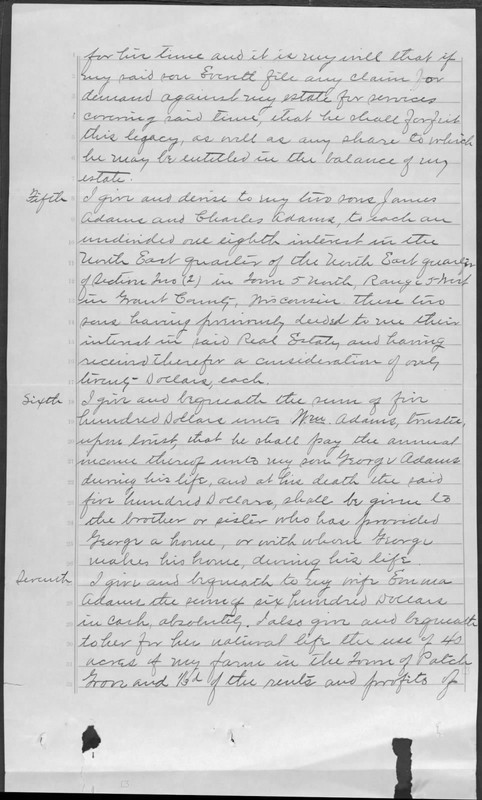 for his time and it is my will that if
my said son Everett file any claim or
demand against my estate for services
covering said time, that he shall forfeit
this legacy, as well as any share to which
he may be entitled in the balance of my
estate.
Fifth I give and devise to my two sons, James
Adams and Charles Adams, to each an
undivided one eighth interest in the
North East quarter of the North East quarter
of Section Two (2) in Town 5 North, Range 5 West
in Grant County, Wisconsin. These two
sons having previously deeded to me their
interest in said Real Estate, and having
received therefor a consideration of only
twenty Dollars, each.
Sixth I give and bequeath the sum of five
hundred Dollars unto Wm. Adams, trustee,
upon trust, that he shall pay the annual
income thereof unto my son George Adams
during his life, and at his death the said
five hundred Dollars, shall be given to
the brother or sister who has provided
George a home, or with whom George
makes his home, during his life.
Seventh I give and bequeath to my wife Emma
Adams the sum of six hundred Dollars
in cash, absolutely. I also give and bequeath
to her for her natural life the use of 40
acres of my farm in the Town of Patch
Grove and 1/3d of the rents and profits of